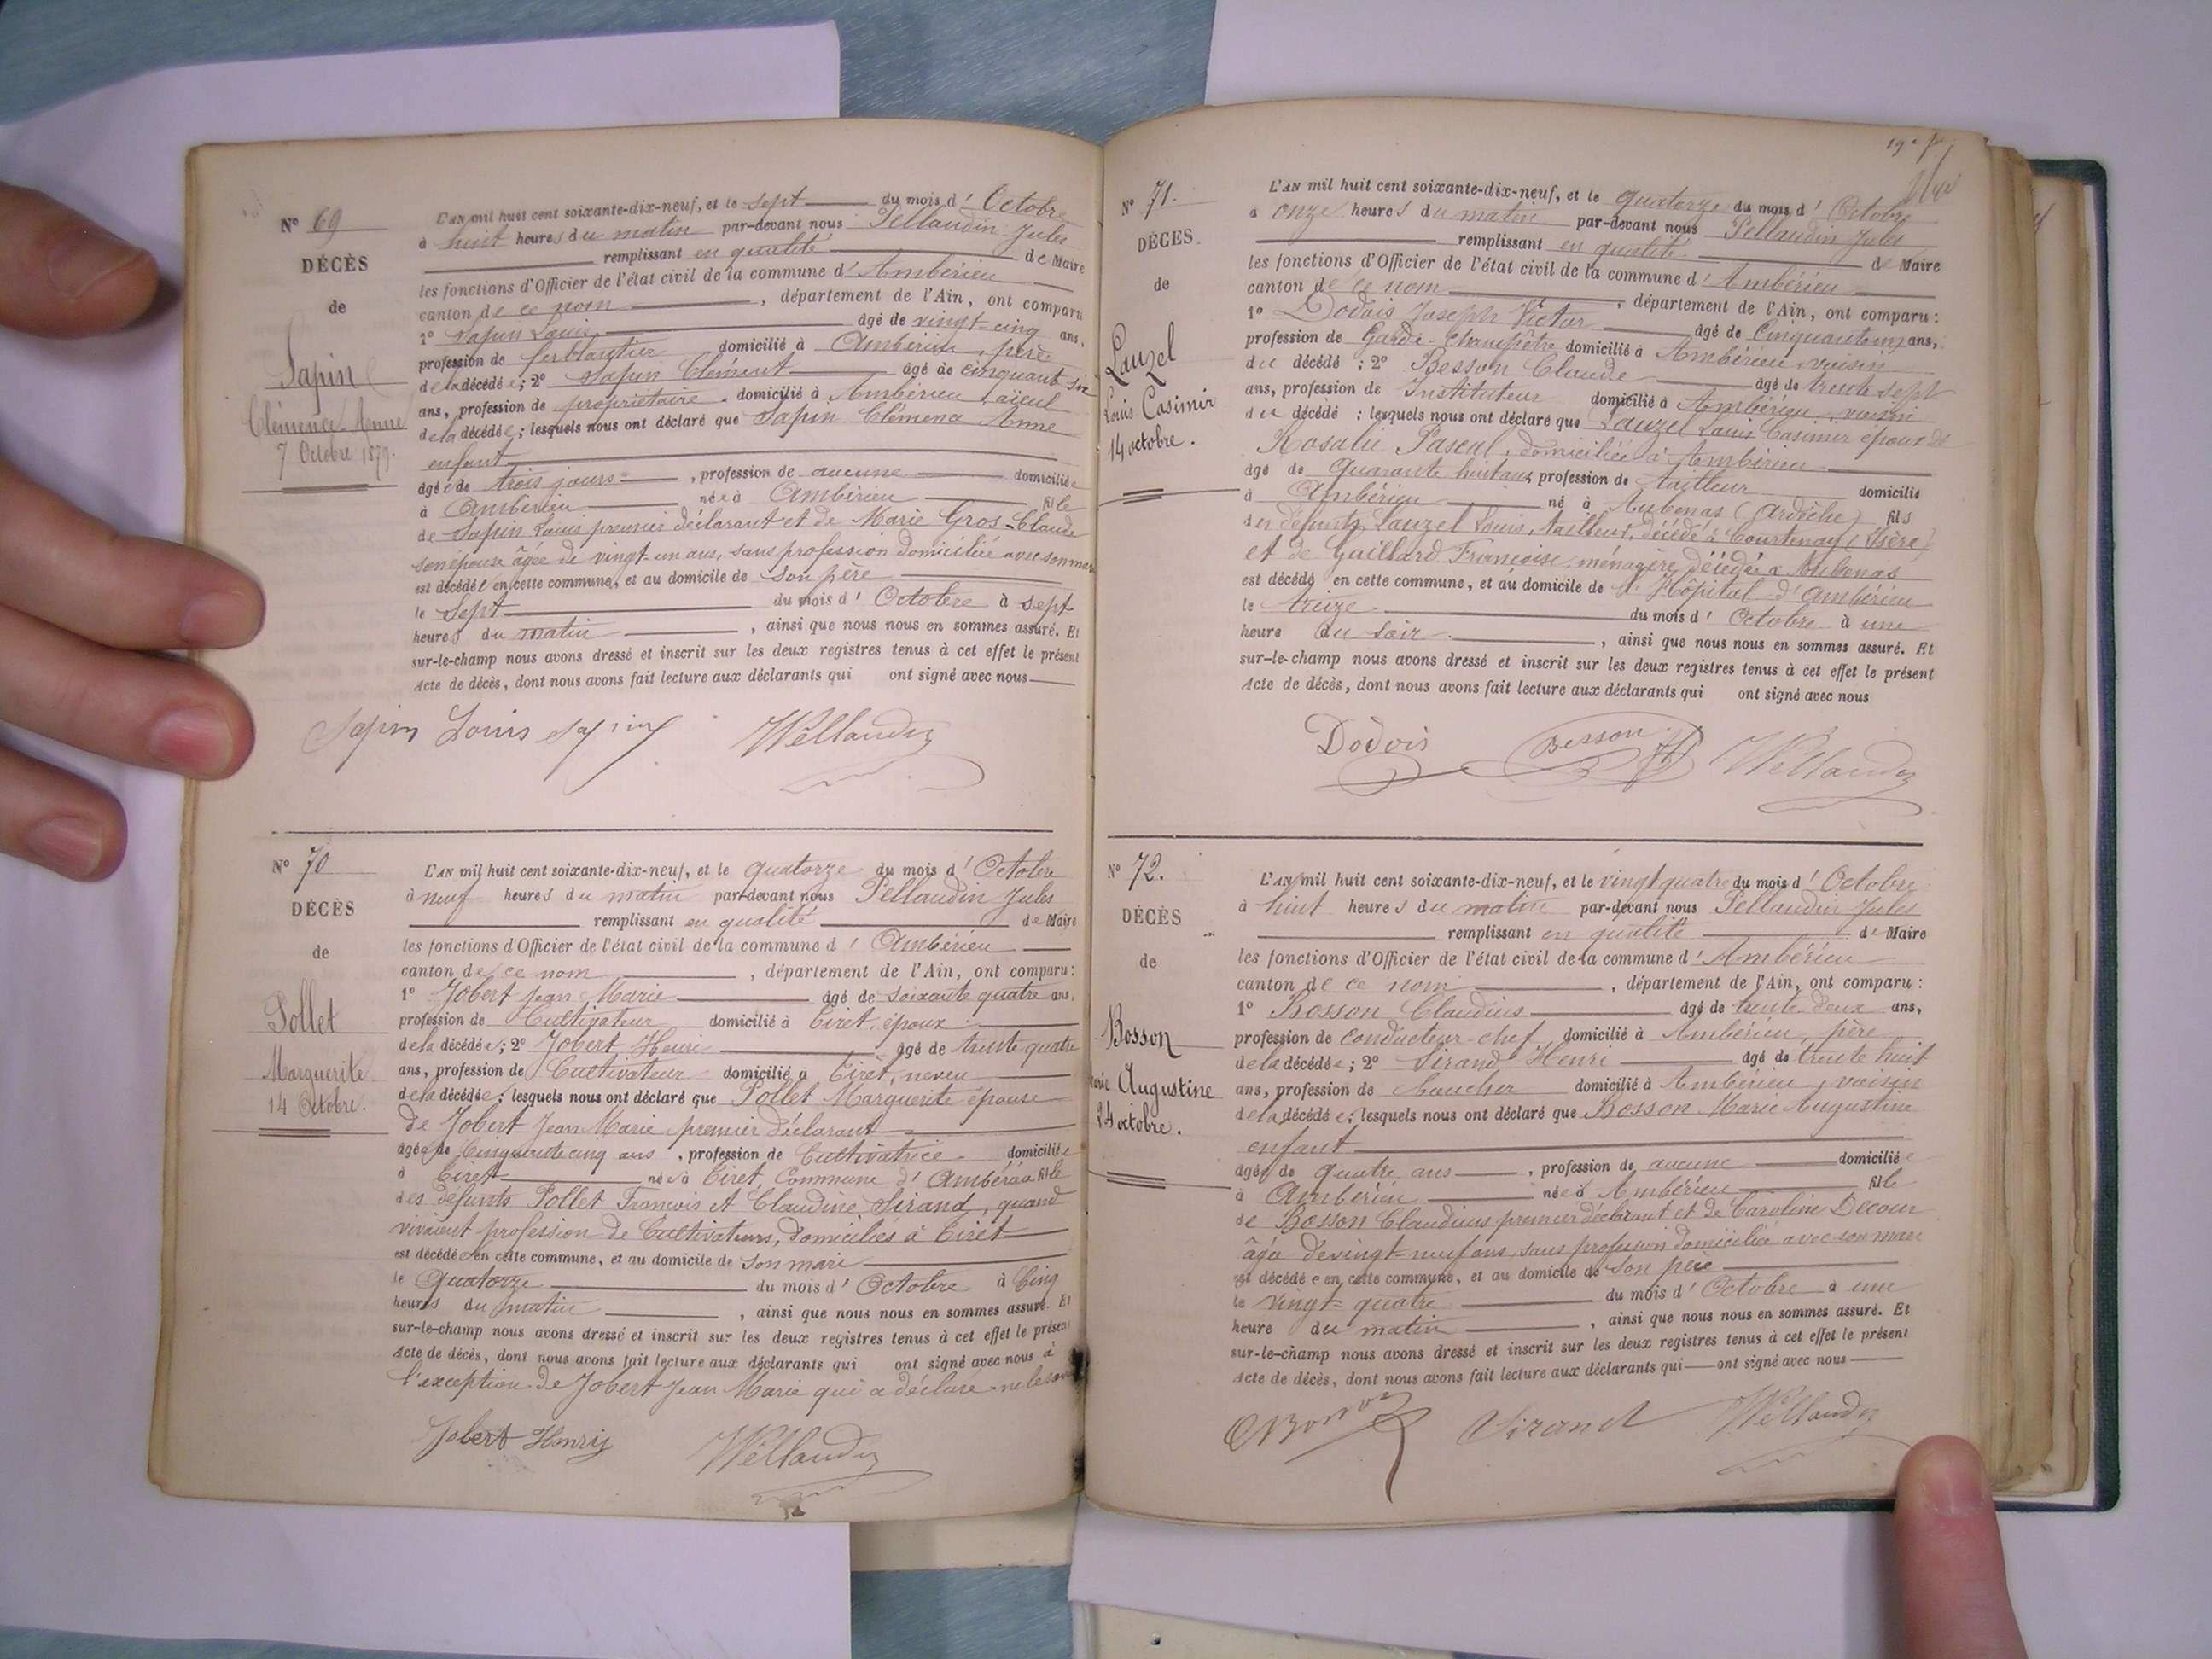 N° 69
DÉCÈS
de
Sapin
Clémence Anne
7 Octobre 1879.
L'AN mil huit cent soixante-dix-neuf, et le sept du mois d' Octobre
à huit heures du matin par-devant nous Pellaudin Jules
remplissant en qualité de Maire
les fonctions d'Officier de l'état civil de la commune d' Ambérieu
canton de ce nom, département de l'Ain, ont comparu
1° Sapin Louis âgé de vingt-cinq ans,
profession de ferblantier domicilié à Ambérieu, père
de la décédée; 2° Sapin Clément âgé de cinquante six
ans, profession de propriétaire domicilié à Ambérieu, aïeul
de la décédée; lesquels nous ont déclaré que Sapin Clémence Anne
enfant
âgée de trois jours, profession de aucune domiciliée
à Ambérieu née à Ambérieu fille
de Sapin Louis premier déclarant et de Marie Gros-Claude
son épouse âgée de vingt-un ans, sans profession domiciliée avec son mari
est décédée en cette commune, et au domicile de son père
le Sept du mois d' Octobre à sept
heures du matin, ainsi que nous nous en sommes assuré. Et
sur-le-champ nous avons dressé et inscrit sur les deux registres tenus à cet effet le présent
Acte de décès, dont nous avons fait lecture aux déclarants qui ont signé avec nous
Sapin Louis Sapin Pellaudin
N° 70
DÉCÈS
de
Pollet
Marguerite
14 Octobre.
L'AN mil huit cent soixante-dix-neuf, et le quatorze du mois d' Octobre
à neuf heures du matin par-devant nous Pellaudin Jules
remplissant en qualité de Maire
les fonctions d'Officier de l'état civil de la commune d' Ambérieu
canton de ce nom, département de l'Ain, ont comparu :
1° Jobert Jean Marie âgé de soixante quatre ans,
profession de Cultivateur domicilié à Tiret, époux
de la décédée; 2° Jobert Henri âgé de trente quatre
ans, profession de Cultivateur domicilié à Tiret, neveu
de la décédée; lesquels nous ont déclaré que Pollet Marguerite épouse
de Jobert Jean Marie premier déclarant
âgée de Cinquante cinq ans, profession de Cultivatrice domiciliée
à Tiret née à Tiret, Commune d' Ambérieu fille
des défunts Pollet François et Claudine Sirand, quand
vivaient profession de Cultivateurs, domiciliés à Tiret
est décédée en cette commune, et au domicile de Son mari
le quatorze du mois d' Octobre à Cinq
heures du matin, ainsi que nous nous en sommes assuré. Et
sur-le-champ nous avons dressé et inscrit sur les deux registres tenus à cet effet le présent
Acte de décès, dont nous avons fait lecture aux déclarants qui ont signé avec nous à
l'exception de Jobert Jean Marie qui a déclaré ne le
Jobert Henry Pellaudin
19e
N° 71.
DÉCES.
de
Lauzel
Louis Casimir
14 octobre.
L'AN mil huit cent soixante-dix-neuf, et le quatorze du mois d' Octobre
à onze heures du matin par-devant nous Pellaudin Jules
remplissant en qualité de Maire
les fonctions d'Officier de l'état civil de la commune d' Ambérieu
canton de ce nom, département de l'Ain, ont comparu :
1° Dodois Joseph Victor âgé de Cinquante ans,
profession de Garde-Champêtre domicilié à Ambérieu, voisin
du décédé ; 2° Besson Claude âgé de trente sept
ans, profession de Instituteur domicilié à Ambérieu, voisin
du décédé : lesquels nous ont déclaré que Lauzel Louis Casimir époux de
Rosalie Pascal, domiciliée à Ambérieu
âgé de Quarante huit ans, profession de tailleur domicilié
à Ambérieu né à Aubenas (Ardèche) fils
des défunts Lauzel Louis, tailleur, décédé à Courtenay (Isère)
et de Gaillard Françoise, ménagère, décédée à Aubenas
est décédé en cette commune, et au domicile de l'Hôpital d'Ambérieu
le treize du mois d' Octobre à une
heure du soir, ainsi que nous nous en sommes assuré. Et
sur-le-champ nous avons dressé et inscrit sur les deux registres tenus à cet effet le présent
Acte de décès, dont nous avons fait lecture aux déclarants qui ont signé avec nous
Dodois Besson Pellaudin
N° 72.
DÉCÈS
de
Bosson
Marie Augustine
24 octobre.
L'AN mil huit cent soixante-dix-neuf, et le vingt quatre du mois d' Octobre
à huit heures du matin par-devant nous Pellaudin Jules
remplissant en qualité de Maire
les fonctions d'Officier de l'état civil de la commune d' Ambérieu
canton de ce nom, département de l'Ain, ont comparu :
1° Bosson Claudius âgé de trente deux ans,
profession de conducteur-chef domicilié à Ambérieu, père
de la décédée; 2° Sirand Henri âgé de trente huit
ans, profession de boucher domicilié à Ambérieu, voisin
de la décédée; lesquels nous ont déclaré que Bosson Marie Augustine
enfant
âgée de quatre ans, profession de aucune domiciliée
à Ambérieu née à Ambérieu fille
de Bosson Claudius premier déclarant et de Caroline Decour
âgée de vingt-neuf ans, sans profession domiciliée avec son mari
est décédée en cette commune, et au domicile de Son père
le vingt-quatre du mois d' Octobre à une
heure du matin, ainsi que nous nous en sommes assuré. Et
sur-le-champ nous avons dressé et inscrit sur les deux registres tenus à cet effet le présent
Acte de décès, dont nous avons fait lecture aux déclarants qui ont signé avec nous
Sirand Pellaudin